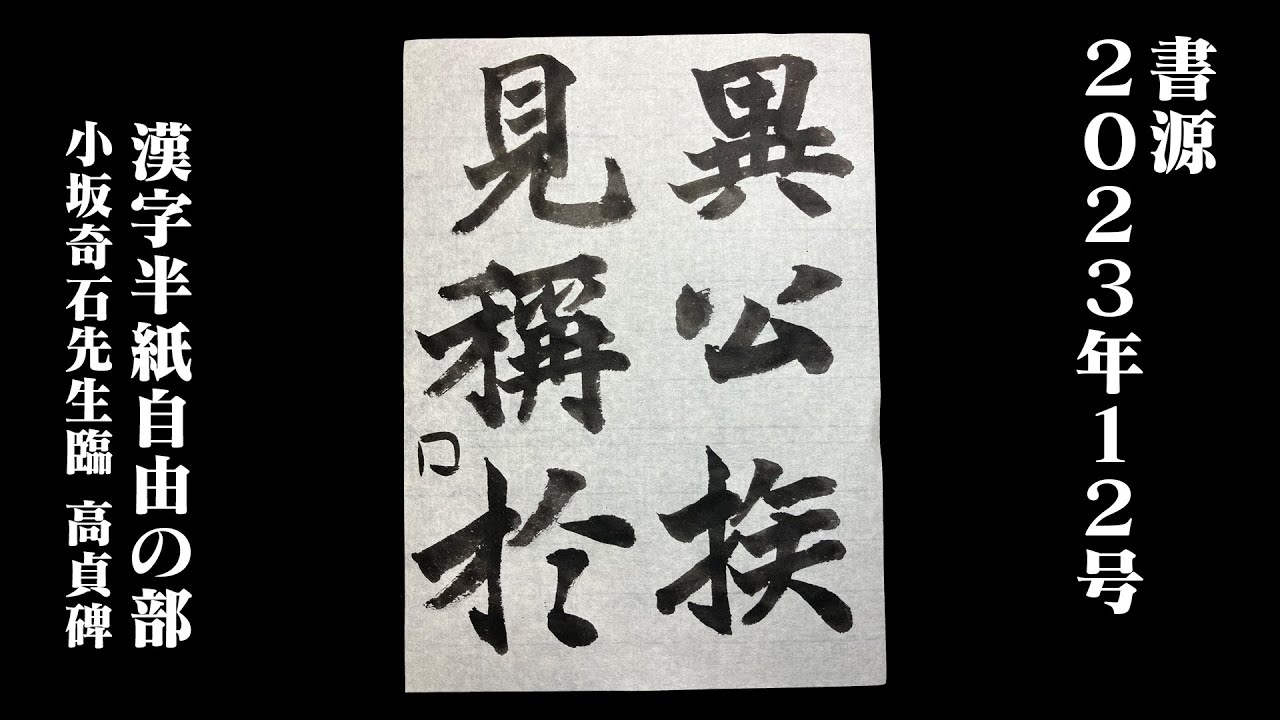 書源
2023年12号
異公族
見稱於
漢字半紙自由の部
小坂奇石先生臨 高貞碑